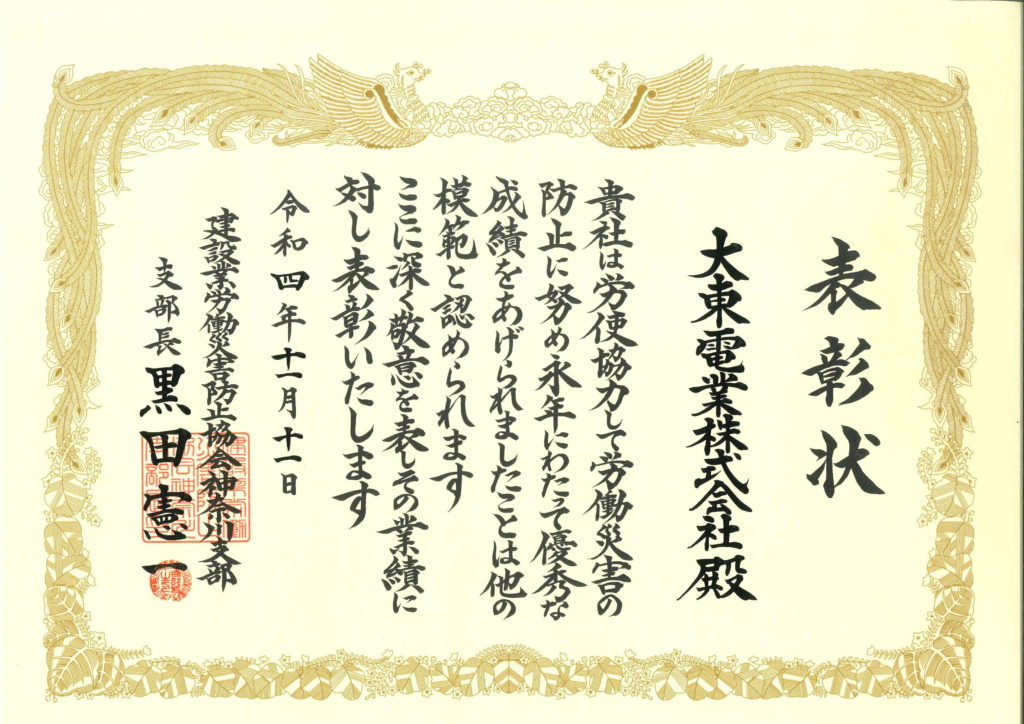 表彰状
大東電業株式会社殿
貴社は労使協力して労働災害の
防止に努め永年にわたって優秀な
成績をあげられましたことは他の
模範と認められます
ここに深く敬意を表しその業績に
対し表彰いたします
令和四年十一月十一日
建設業労働災害防止協会神奈川支部
支部長黒田憲一